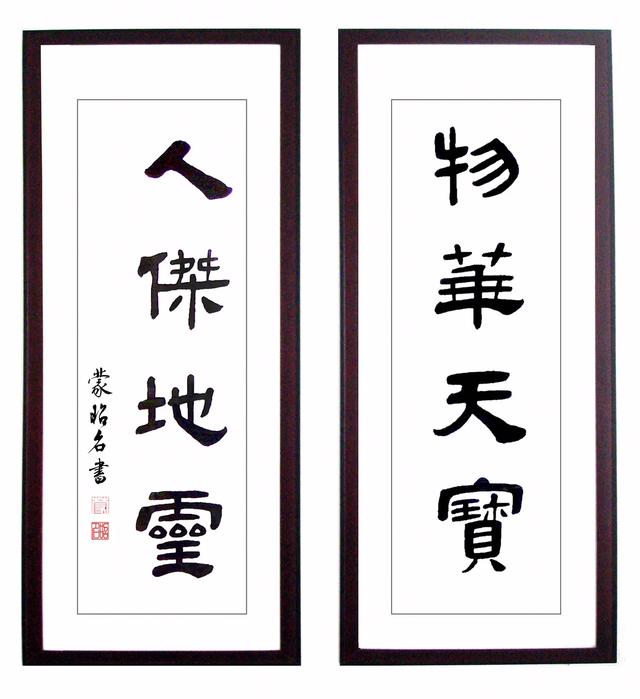 物華天寶
人傑地靈
蒙昭名書